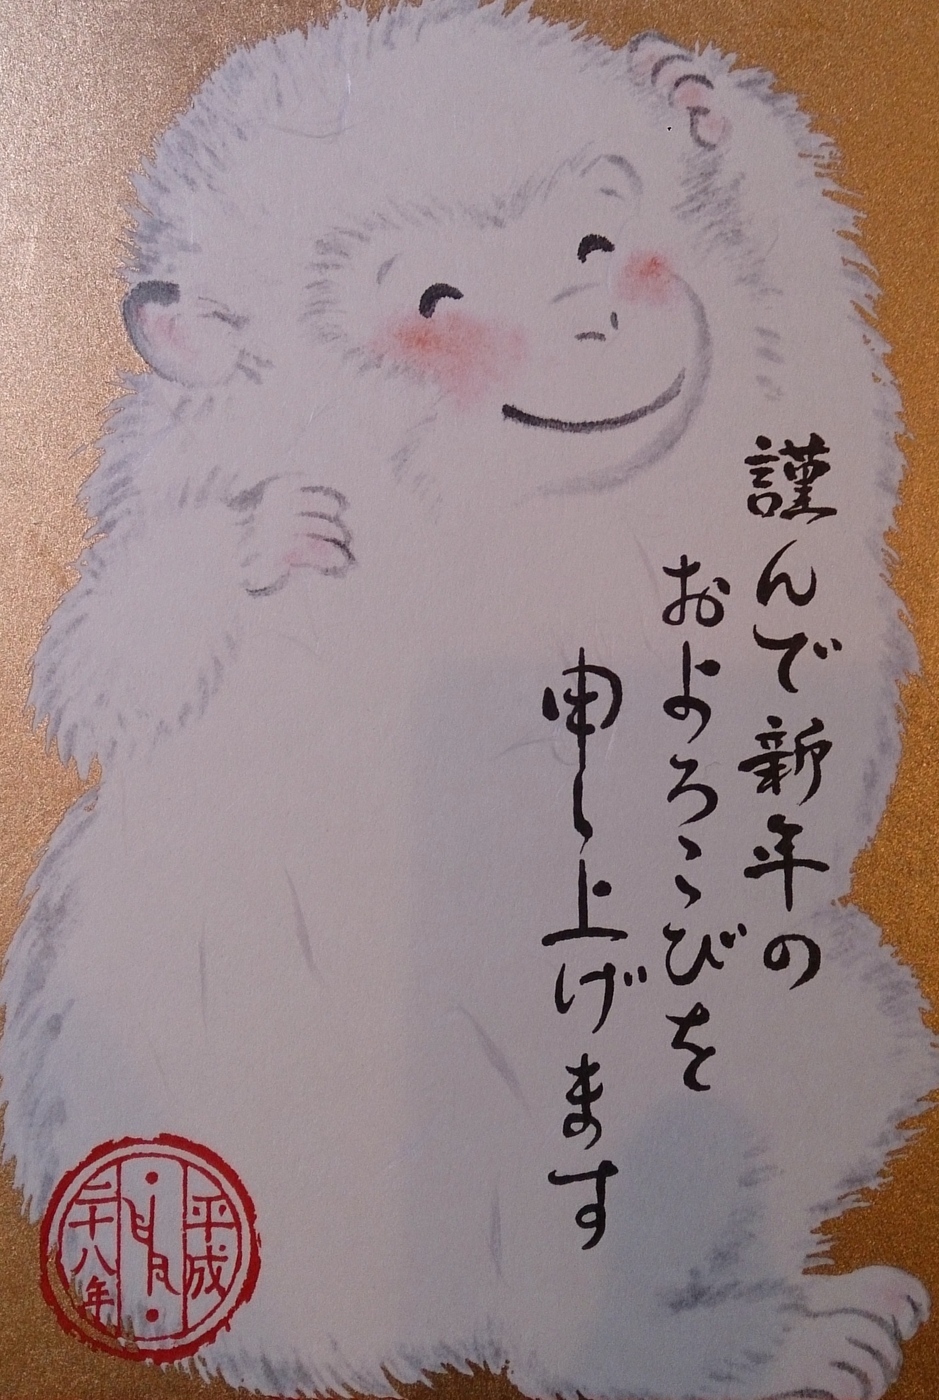 謹んで新年の
およろこびを
申し上げます
平成
二十八年